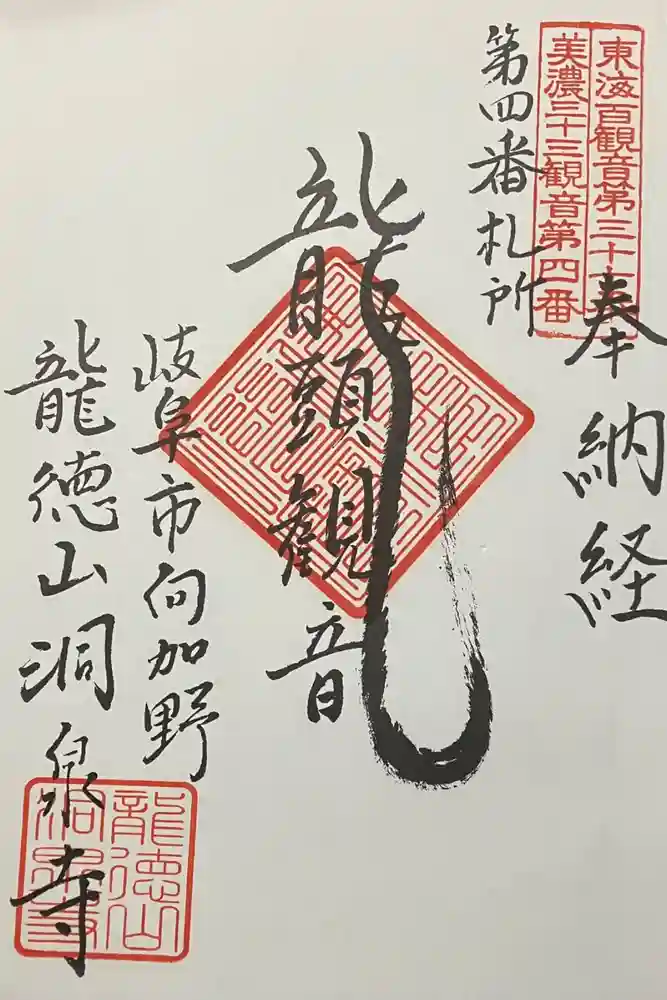 奉納経
東海百観音第三十七番
美濃三十三観音第四番
第四番札所
龍頭観音
岐阜市向加野
龍徳山洞泉寺
龍徳山
洞泉寺